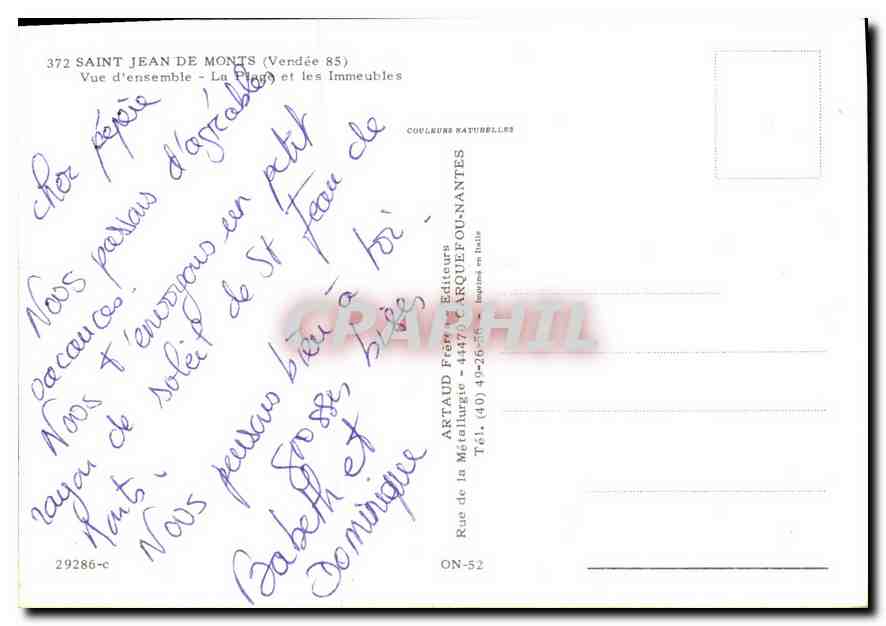 372 SAINT JEAN DE MONTS (Vendée 85)
Vue d'ensemble - La Plage et les Immeubles
COULEURS NATURELLES
cher pépère
Nous passons d'agréables
vacances.
Nous t'envoyons un petit
rayon de soleil de St Jean de
Monts.
Nous pensons bien à toi.
grosses bises
Babeth et
Dominique
ARTAUD Frères - Editeurs
Rue de la Métallurgie - 44470 CARQUEFOU-NANTES
Tél. (40) 49-26-56 - Imprimé en Italie
CPAPHIL
29286-c
ON-52